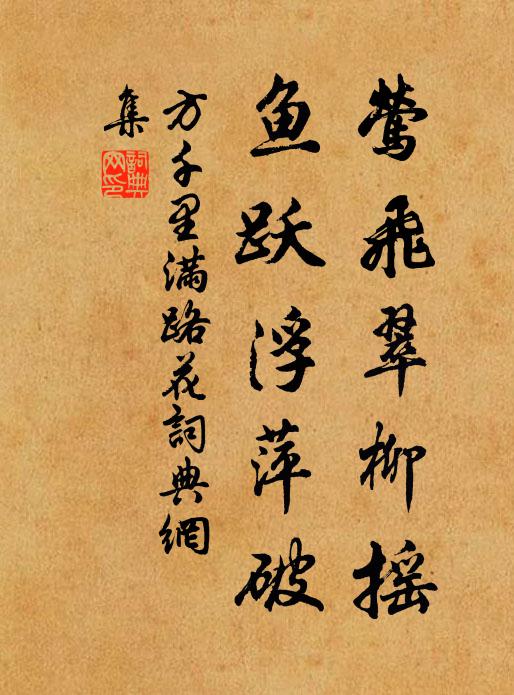 莺飛翠柳摇
鱼跃浮萍破
方千里满路花詞典網
集
詞典
网印